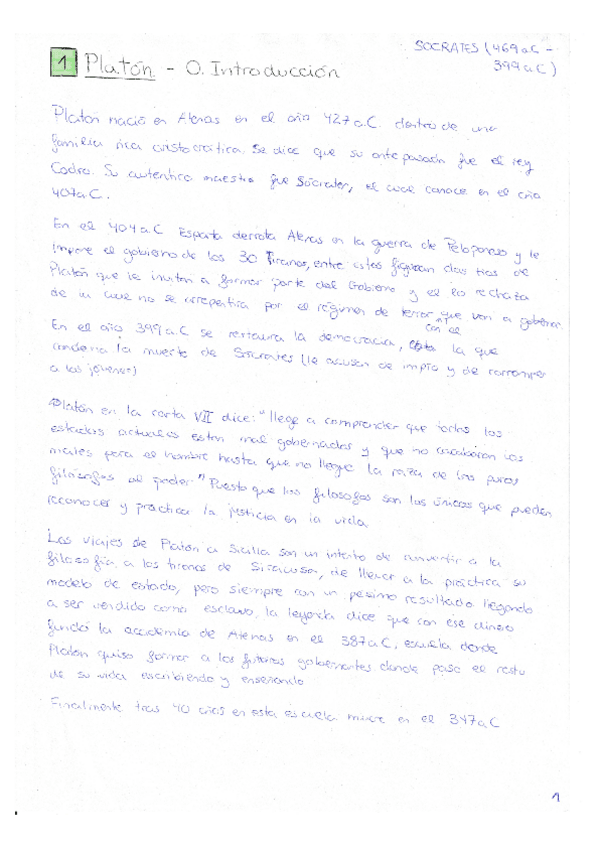 SOCRATES (469 a.C -
399 a.C)
1 Platón - 0. Introducción
Platón nació en Atenas en el año 427 a.C. dentro de una
familia rica aristocrática. Se dice que su antepasado fue el rey
Codro. Su autentico maestro fue Sócrates, el cual conoce en el año
407 a.C.
En el 404 a.C Esparta derrota Atenas en la guerra de Peloponeso y le
impone el gobierno de los 30 Tiranos, entre estos figuran dos tios de
Platón que le invitan a formar parte del Gobierno y el lo rechaza
de lo cual no se arrepentira por el régimen de terror que van a gobernar.
En el año 399 a.C se restaura la democracia, con el la que
condena la muerte de Socrates (le acusan de impío y de corromper
a los jóvenes)
Platón en la carta VII dice: "llege a comprender que todos los
estados actuales estan mal gobernados y que no acabaran los
males para el hombre hasta que no llegue la raza de los puros
filósofos al poder." Puesto que los filosofos son los únicos que pueden
reconocer y practicar la justicia en la vida.
Los viajes de Platón a Sicilia son un intento de convertir a la
filosofía a los tiranos de Siracusa, de llevar a la práctica su
modelo de estado, pero siempre con un pesimo resultado llegando
a ser vendido como esclavo, la leyenda dice que con ese dinero
fundó la academia de Atenas en el 387 a.C, escuela donde
Platón quiso formar a los futuros gobernantes donde paso el resto
de su vida escribiendo y enseñando
Finalmente tras 40 años en esta escuela muere en el 347 a.C
1